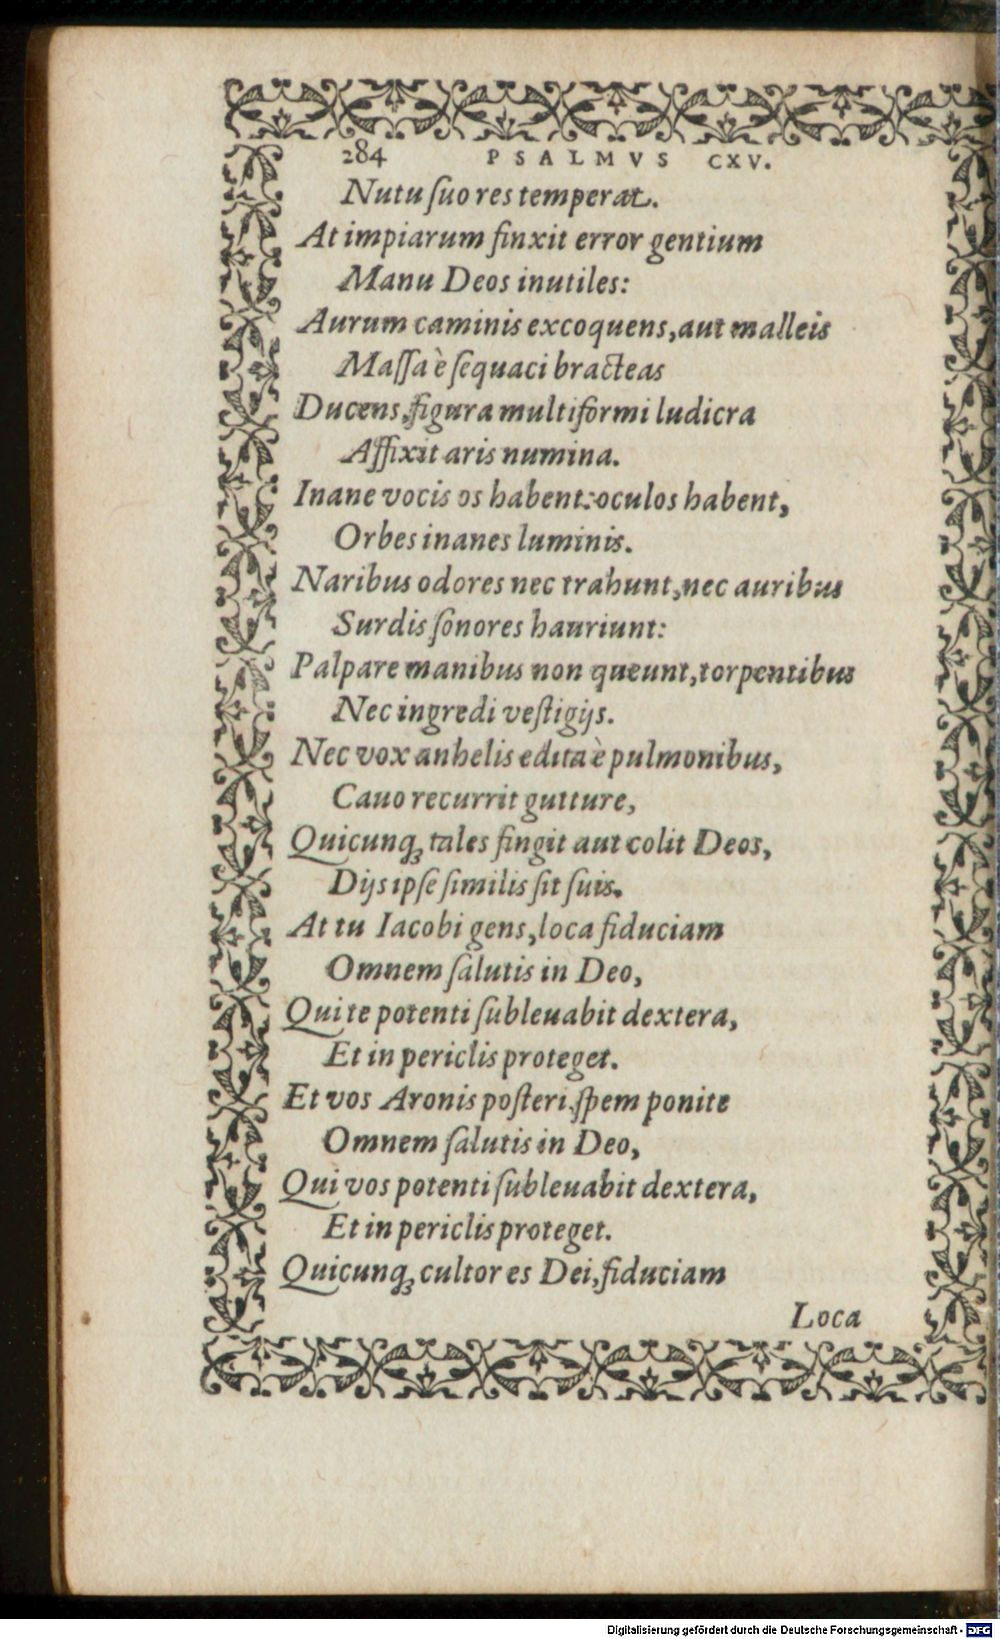 284 PSALMVS CXV.
Nutu ſuo res temperat.
At impiarum finxit error gentium
Manu Deos inutiles:
Aurum caminis excoquens, aut malleis
Maſſa è ſequaci bracteas
Ducens, figura multiformi ludicra
Affixit aris numina.
Inane vocis os habent: oculos habent,
Orbes inanes luminis.
Naribus odores nec trahunt, nec auribus
Surdis ſonores hauriunt:
Palpare manibus non queunt, torpentibus
Nec ingredi veſtigijs.
Nec vox anhelis edita è pulmonibus,
Cauo recurrit gutture,
Quicunq; tales fingit aut colit Deos,
Dijs ipſe ſimilis ſit ſuis.
At tu Iacobi gens, loca fiduciam
Omnem ſalutis in Deo,
Qui te potenti ſubleuabit dextera,
Et in periclis proteget.
Et vos Aronis poſteri, ſpem ponite
Omnem ſalutis in Deo,
Qui vos potenti ſubleuabit dextera,
Et in periclis proteget.
Quicunq; cultor es Dei, fiduciam
Loca
Digitalisierung gefördert durch die Deutsche Forschungsgemeinschaft - DFG